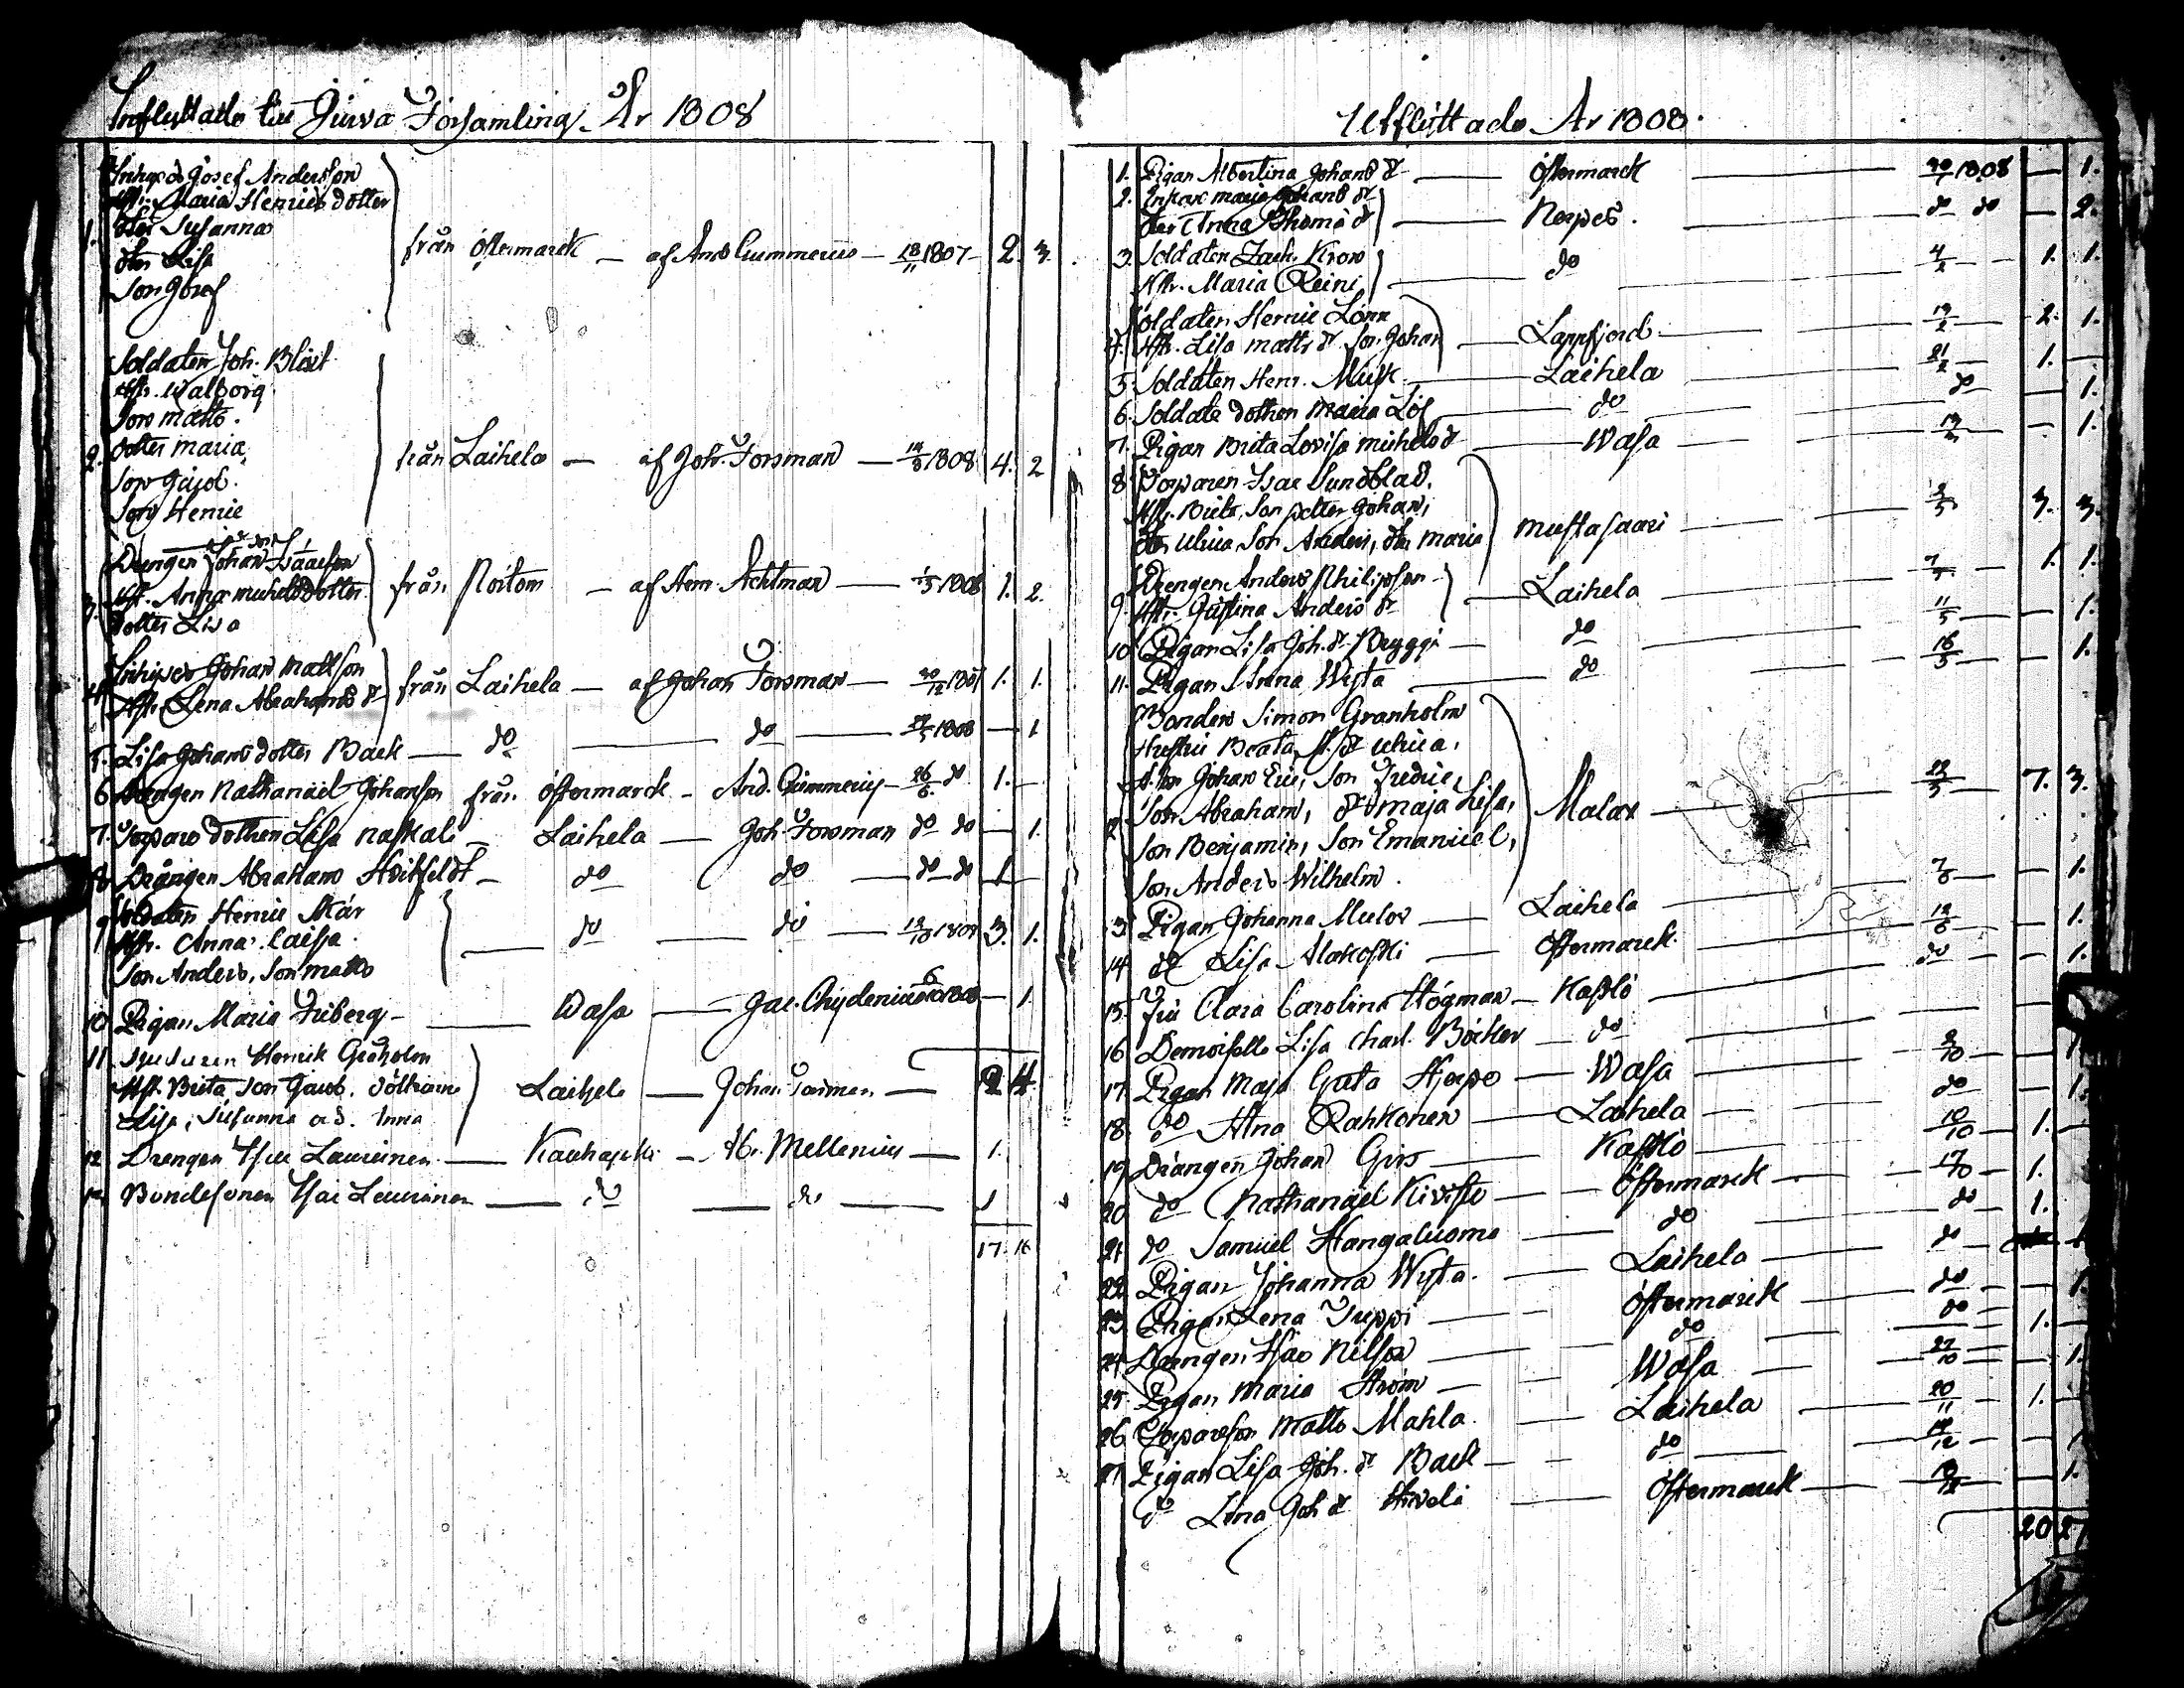 Inflyttade til Jurva Församling År 1808
Inhyses Josef Andersson
Hr. Maria Henricsdotter
1. dter Susanna
dter Lisa
Son Josef
från Östermarck — af And Gummerus — 18/11 1807 — 2. 3.
Soldaten Joh. Blixt
Hr. Walborg
Son Matts.
2. Dotter Maria
Son
Son Henric
från Laihela — af Joh. Forsman — 1808 4. 2
Drengen Johan Isaacson
3. Hr. Anna Michelsdotter
dotter Lisa
från Pörtom — af Hen. Achtman — 1808 1. 2.
Inhyses Johan Mattson
4. Hr. Lena Abrahams dr
från Laihela — af Johan Forsman — 1. 1.
5. Lisa Johans dotter Back — do — do — 1808 — 1
6. Drengen Nathanael Johanson från Östermarck — And. Gummerus — 26/6 do 1. —
7. Torpare dottren Lisa Naskali — Laihela — Joh. Forsman do do — 1.
8. Drängen Abraham Hvitfeldt — do do — do do 1
9. Soldaten Henric Skär
Hr. Anna Caisa
Son Anders, Son Matts
— do — do — 3. 1.
10. Pigan Maria Friberg — Wasa — Jac. Chydenius 1808 — 1.
11 Henrik Gröholm
Hr. Brita, Son Jacob. Döttrarne
Lisa, Susanna och Anna
Laihela — Johan Forsman — 2 4.
12 Drengen Isac Laurinen — Kauhajoki — Mellenius — 1.
Bondesonen Isac Laurinen — do — do — 1
17. 16
Utflyttade Ar 1808.
1. Pigan Albertina Johans dr — Östermarck — 1808 — 1.
2. Enkan Maria Johans dr
dter Anna Thoma dr
— Nerpes. do do — 2.
3. Soldaten Zach. Kron
Hr. Maria Reini
— do — 4/2 — 1. 1.
Soldaten Henric Lönn
4. Hr. Lisa Matts dr Son Johan
— Lappfjerd — 19/2 — 2. 1.
5. Soldaten Henr. Musk — Laihela — 21/2 — 1. —
6. Soldate dottren Maria — do — do — 1.
7. Pigan Brita Lovisa Michels dr — Wasa — 1.
8. Torparen Isac Sundblad.
Hr. Brita, Son Petter Johan,
dter Ulrica Son Anders, dter Maria
Mustasaari — 3. 3.
Drengen Anders Philipson
9. Hr. Justina Anders dr
— Laihela — 1. 1.
10 Pigan Lisa Joh. dr Bryggi — do — 11/5 — 1.
11. Pigan Anna Wysta — do — 16/5 — 1.
Bonden Simon Granholm
Hustru Beata, dr Ulrica,
Son Johan Eric, Son Fredric,
Son Abraham, dr Maja Lisa,
Son Benjamin, Son Emanuel,
Son Anders Wilhelm.
Malax — 22/5 — 7. 3.
13 Pigan Johanna Mulov — Laihela — 1.
14 do Lisa Alakoski — Östermarck — 1.
15. Fru Clara Carolina Högman — Kaskö — do — 1.
16 Demoiselle Lisa Charl. Böcker — do —
17. Pigan Maja Greta Hjerpe — Wasa — 1
18. do Anna Rahkonen — Laihela — do — 1.
19. Drängen Johan Girs — Kaskö — 10/10 — 1.
20 do Nathanael Kivistö — Östermarck — 17/10 — 1.
21. do Samuel Hangaluoma — do — do 1.
22. Pigan Johanna Wysta. — Laihela — do — 1
23. Pigan Lena Treppi — Östermarck — do — 1.
24 Drengen Isac Nilson — do — do — 1.
25. Pigan Maria Ström — Wasa — 22/10 — 1.
26 Torpareson Matts Mahla. — Laihela — 20/11 — 1. —
27 Pigan Lisa Joh. dr Back — do — 1
do Lena Joh dr — Östermarck — 1.
20 27